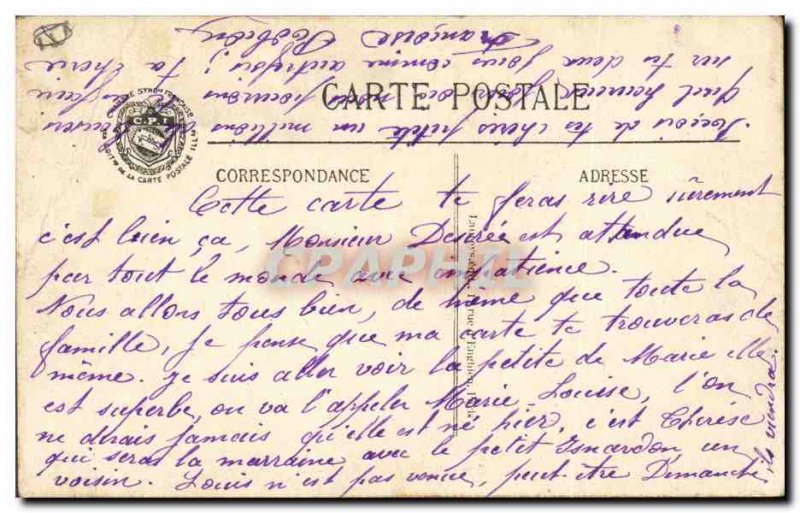 CARTE POSTALE
C.P.I
CORRESPONDANCE
ADRESSE
Cette carte te feras rire sûrement
c'est bien ça, Monsieur Desirée est attendue
par tout le monde avec impatience.
Nous allons tous bien, de même que toute la
famille, je pense que ma carte te trouveras de
même. Je suis aller voir la petite de Marie elle
est superbe, on va l'appeler Marie-Louise, l'on
ne dirais jamais qu'elle est né hier, c'est Thérèse
qui seras la marraine avec le petit Isnardon, un
voisin. Louis n'est pas venue, peut-être Dimanche
ils viendra.
Reçois de ta chère petite un millions de
quel
sur tes deux joues comme autrefois; ta chérie
Françoise
CPAPHIL